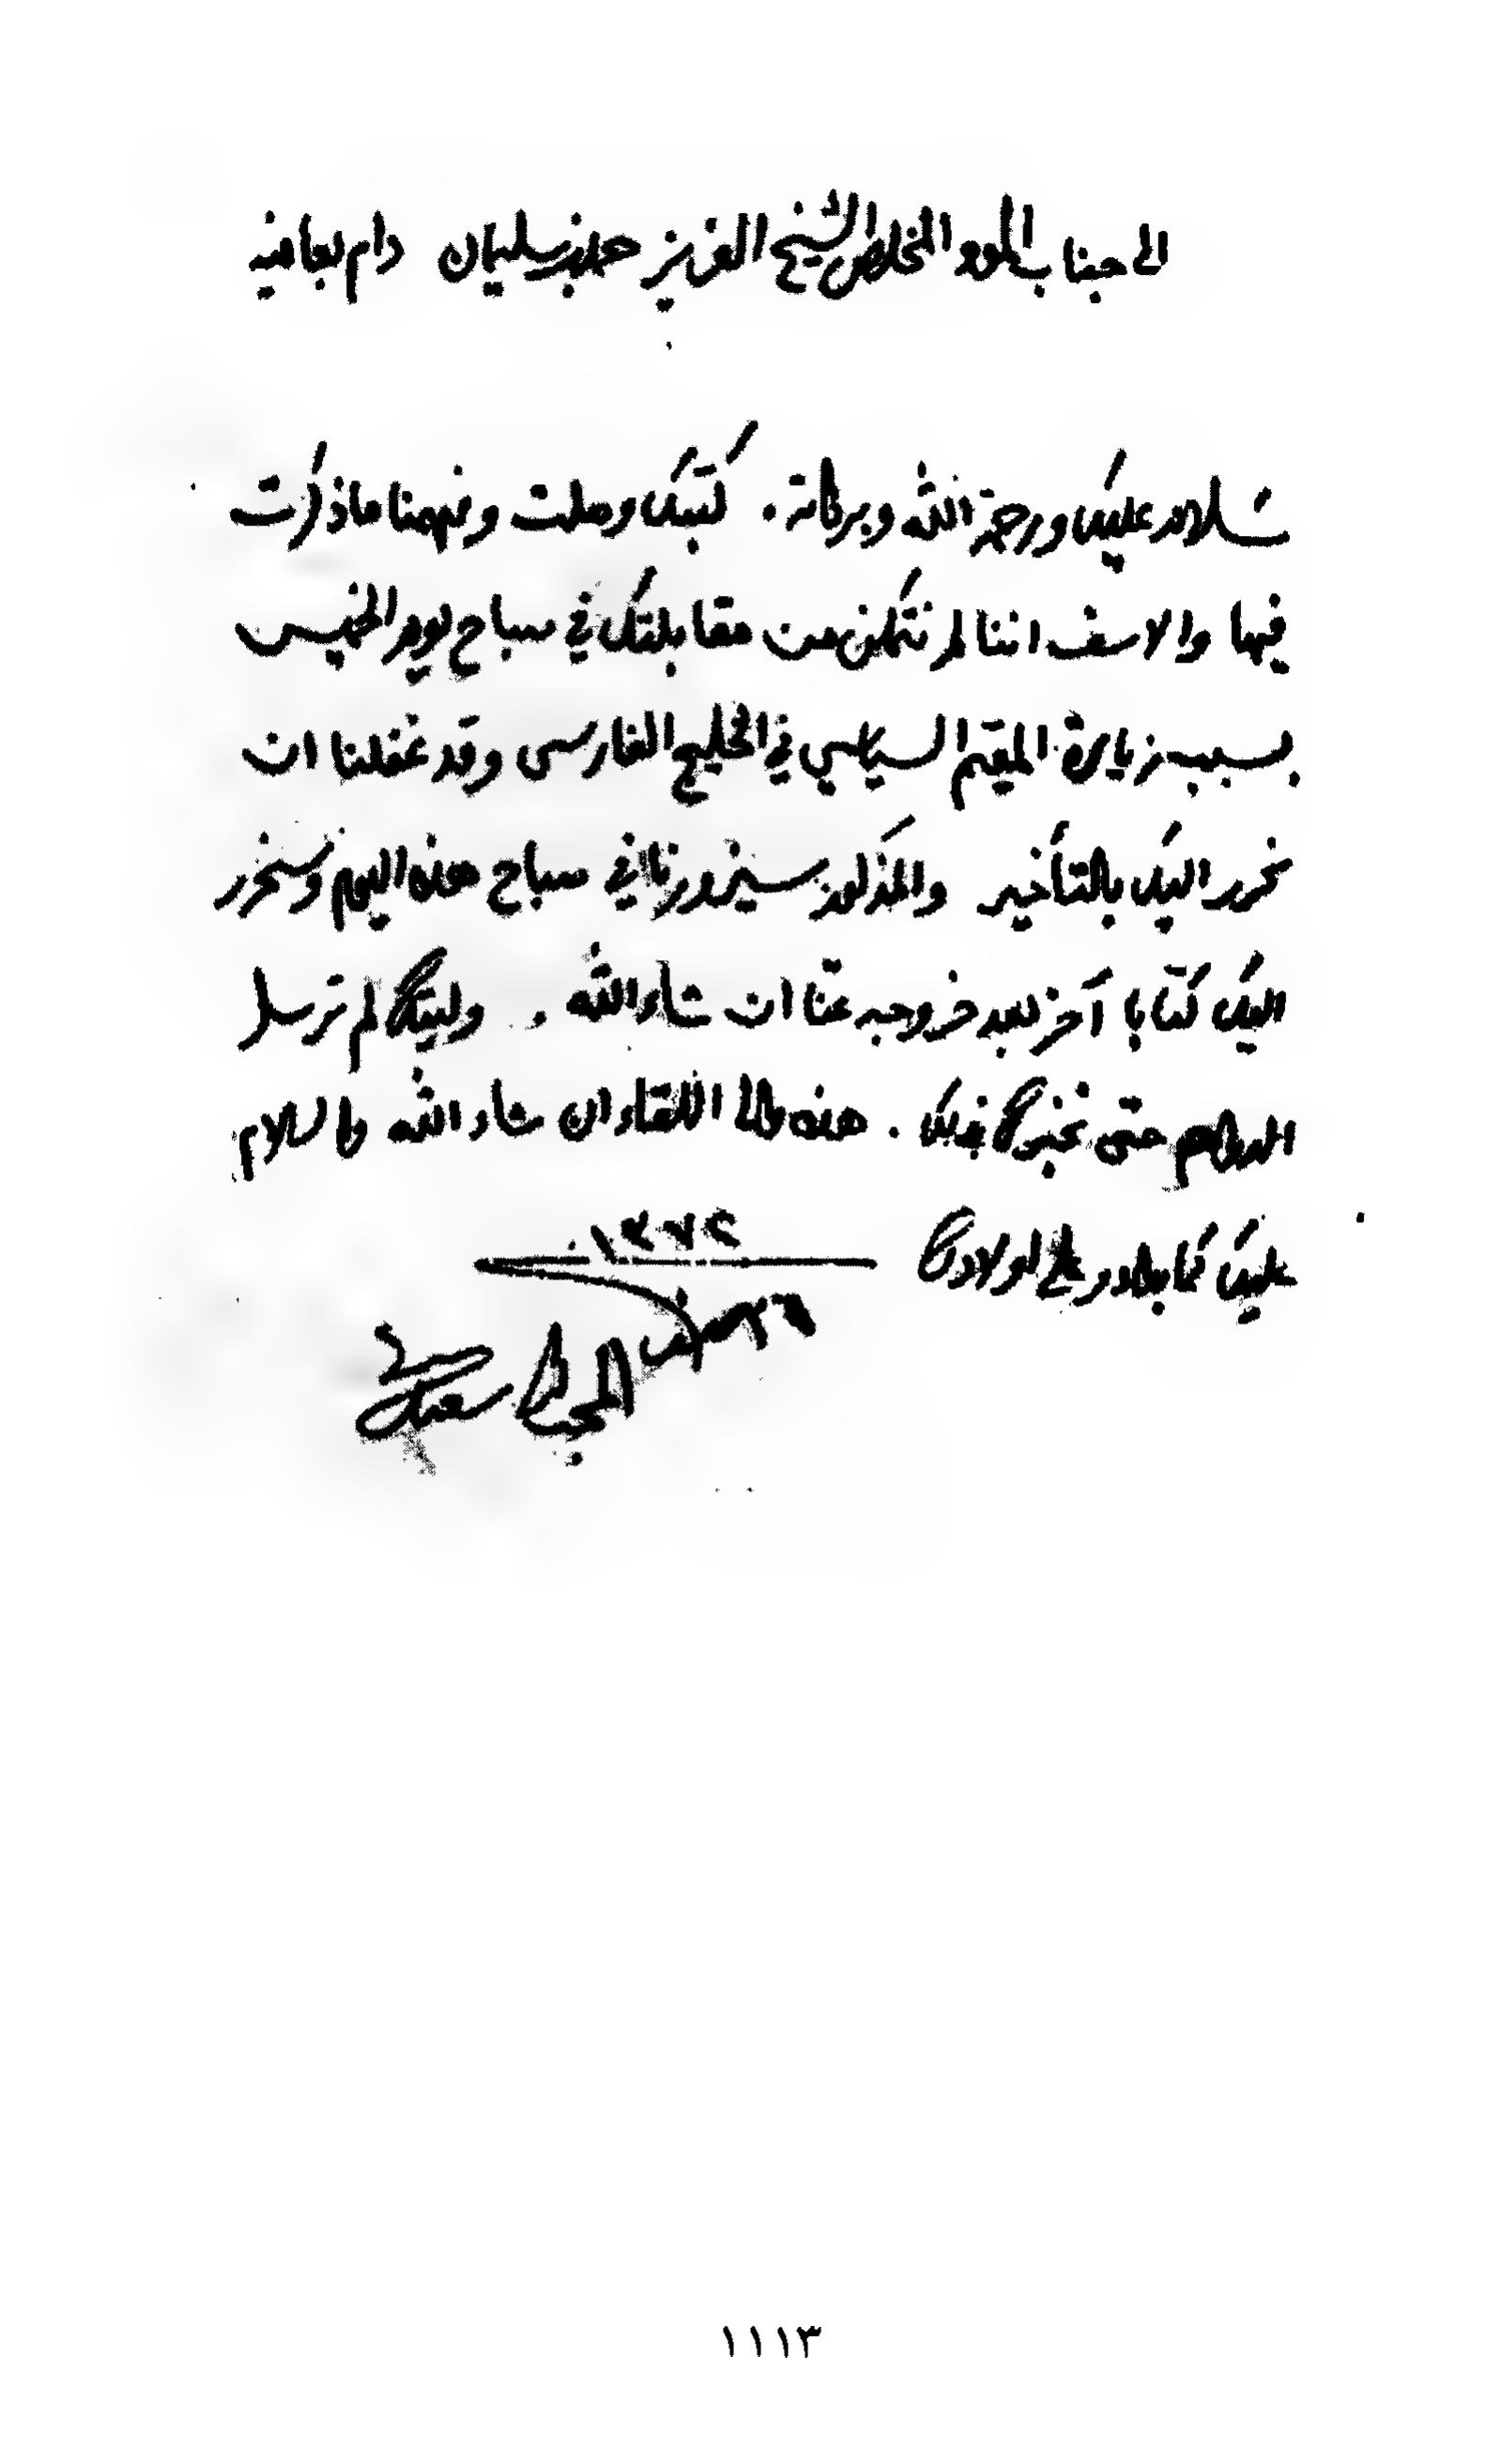 الى جناب المود المخلص الشيخ العزيز حمد بن سليمان دام بعافيه
سلام عليك ورحمة الله وبركاته . كتبك وصلت وفهمنا ماذكرت
فيها والاسف اننا لم نتمكن من مقابلتك في صباح يوم الخميس
بسبب زيارة المقيم السياسي في الخليج الفارسي وقد غفلنا ان
نحرر اليك بالتأخير والمذكور سيزورنا في صباح هذا اليوم وسنحرر
اليك كتابا آخر بعد خروجه عنّا ان شاء الله . وليتك لم ترسل
حتى نخبرك بذلك . هذه والى اللقاء ان شاء الله والسلام
عليك كما بدا وعلى اولادك
١٣٧٢
صفر
سعيد
١١١٣